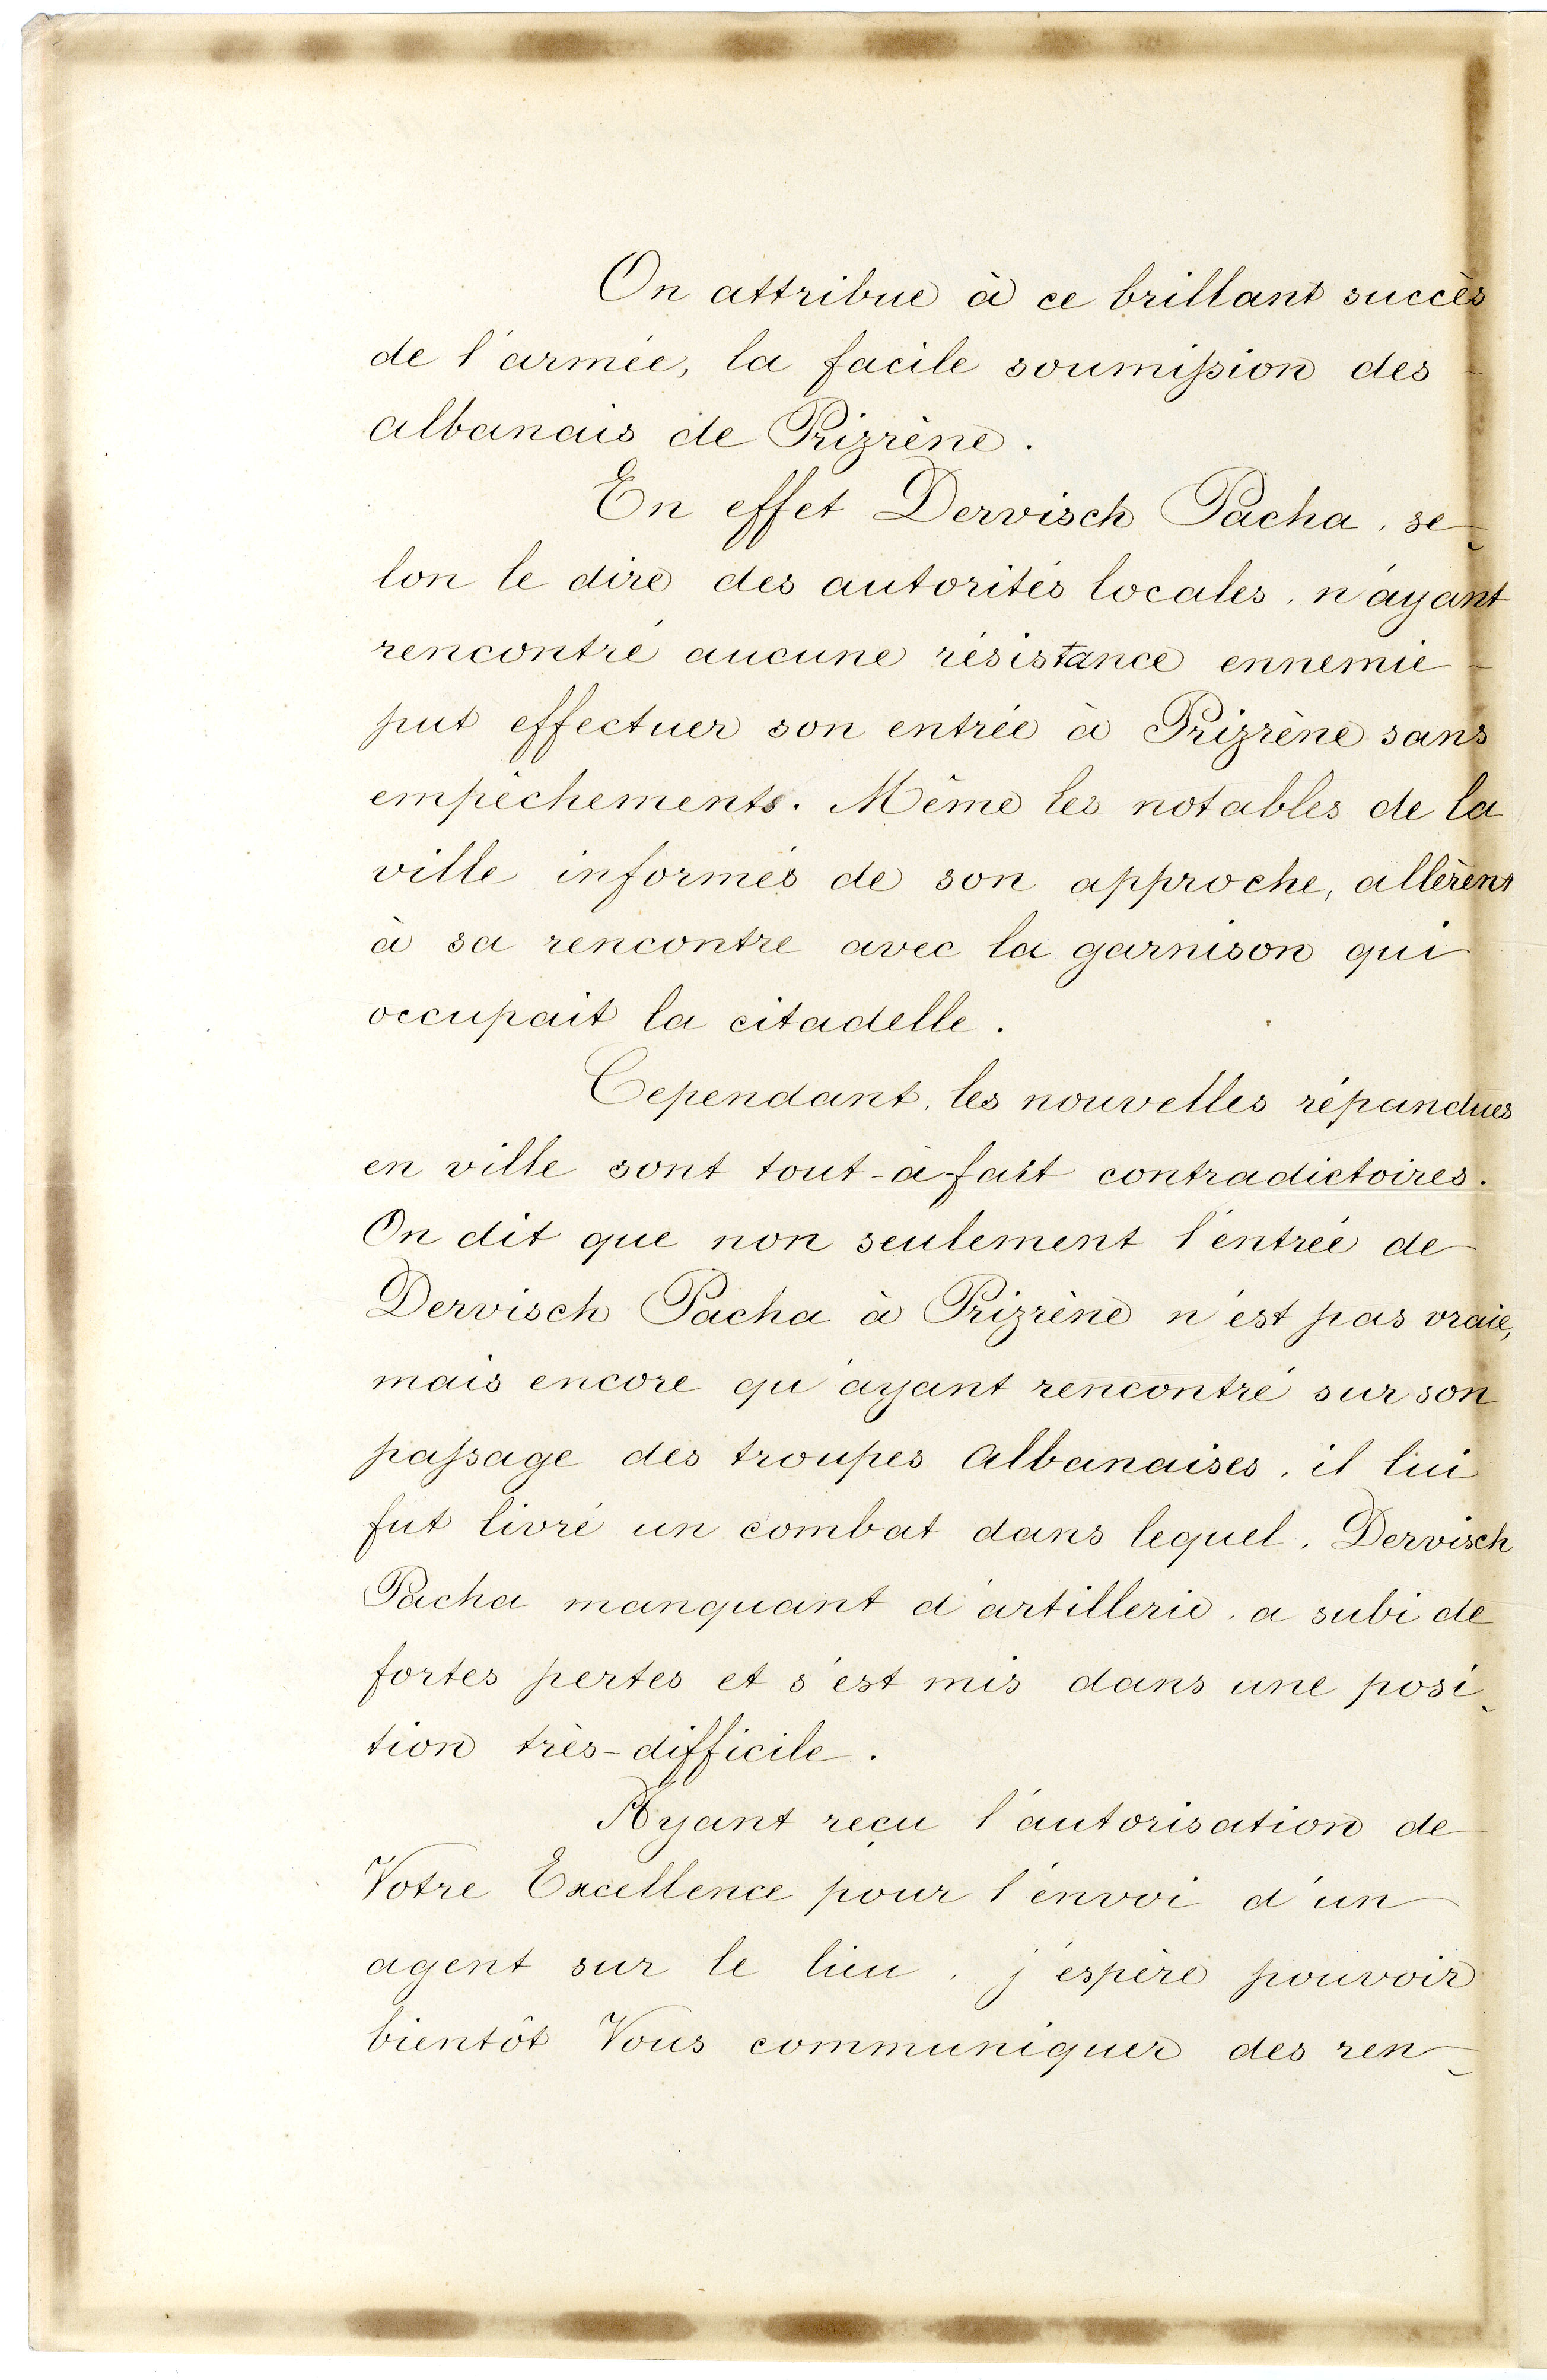 On attribue à ce brillant succès
de l'armée, la facile soumission des
albanais de Prizrène.
En effet Dervisch Pacha, se-
lon le dire des autorités locales, n'ayant
rencontré aucune résistance ennemie
put effectuer son entrée à Prizrène sans
empêchements. Même les notables de la
ville informés de son approche, allèrent
à sa rencontre avec la garnison qui
occupait la citadelle.
Cependant, les nouvelles répandues
en ville sont tout-à-fait contradictoires.
On dit que non seulement l'entrée de
Dervisch Pacha à Prizrène n'est pas vraie,
mais encore qu'ayant rencontré sur son
passage des troupes Albanaises, il lui
fut livré un combat dans lequel, Dervisch
Pacha manquant d'artillerie, a subi de
fortes pertes et s'est mis dans une posi-
tion très-difficile.
Ayant reçu l'autorisation de
Votre Excellence pour l'envoi d'un
agent sur le lieu, j'espère pouvoir
bientôt Vous communiquer des ren-